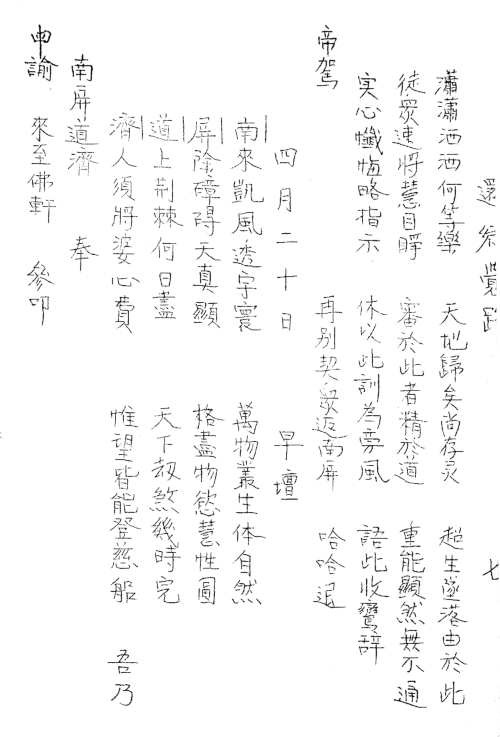 還祭覺路 七
瀟瀟洒洒何等樂 天地歸矣尚存灵 超生墜落由於此
徒眾速將慧目睜 審於此者精於道 重能顯然無不通
实心懺悔略指示 休以此訓為旁風 語此收鸞辞
帝駕 再別契眾返南屏 哈哈退
四月二十日 早壇
南來凱風透宇寰 萬物叢生体自然
屏除璋碍天真顯 格盡物慾慧性圓
道上荆棘何日盡 天下刼煞幾時完
濟人須將婆心費 惟望皆能登慈船 吾乃
南屏道濟 奉
申諭 來至佛軒 參叩